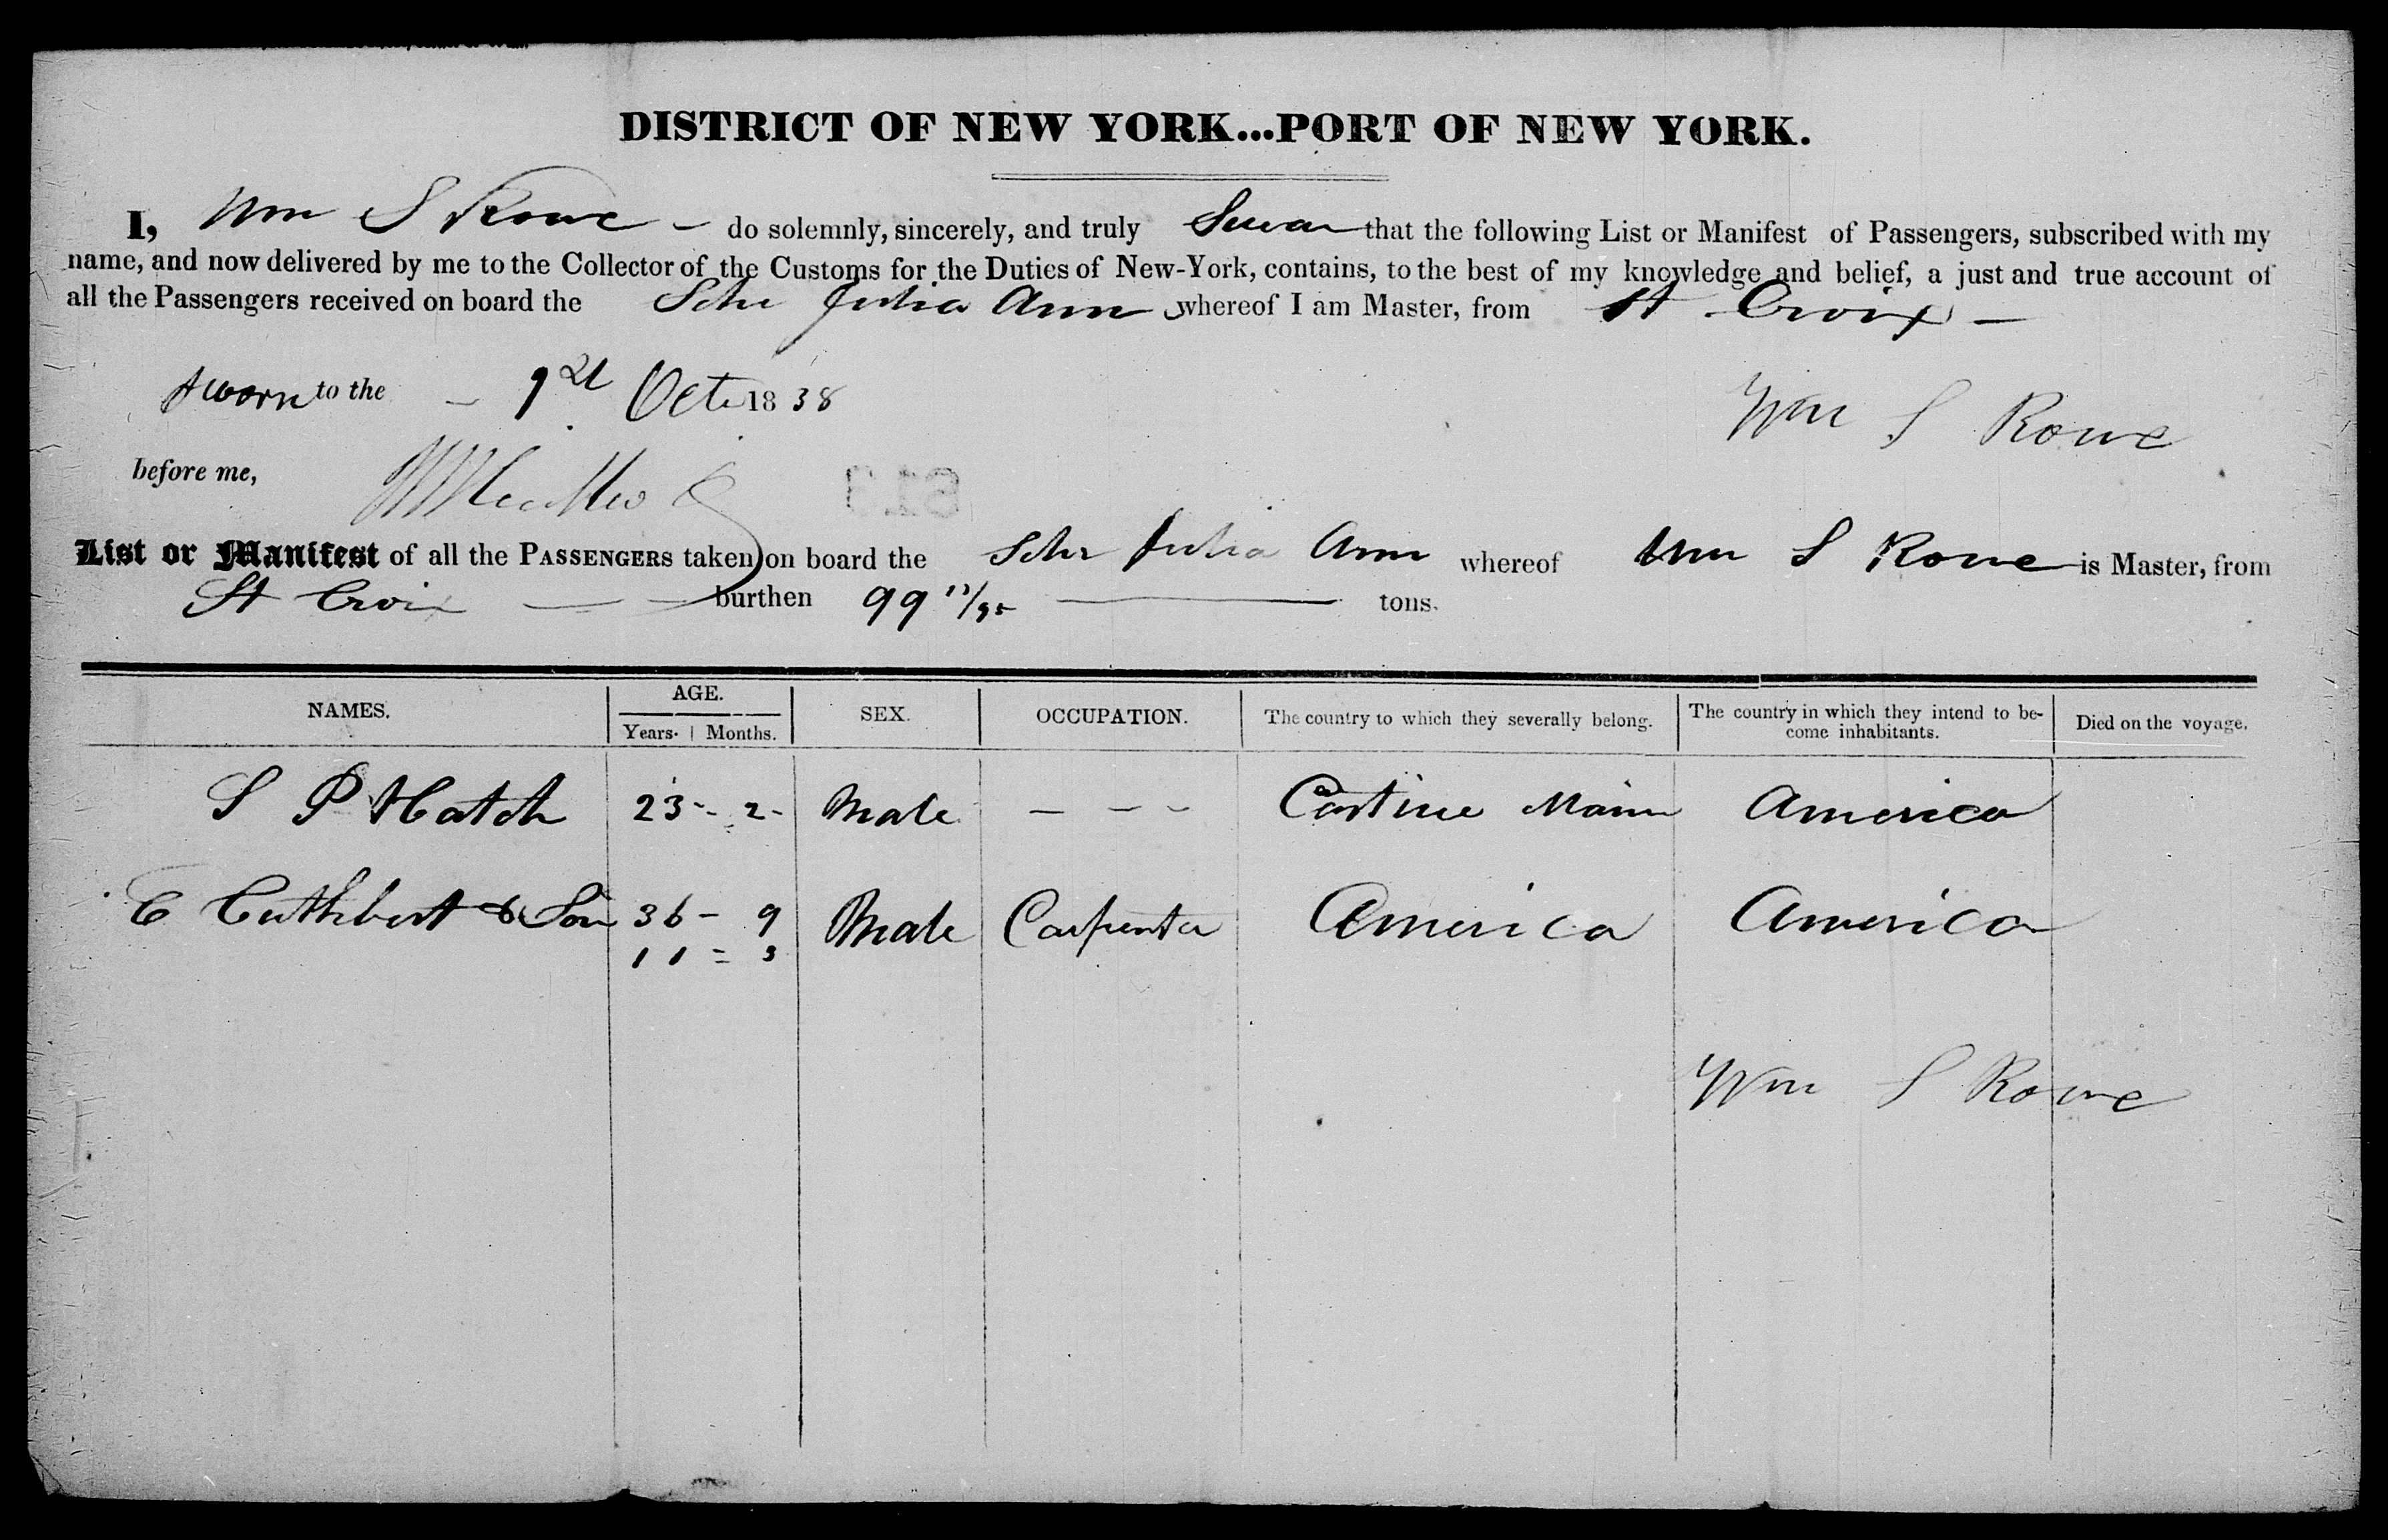 DISTRICT OF NEW YORK...PORT OF NEW YORK.
I, Wm S Rowe - do solemnly, sincerely, and truly Swear that the following List or Manifest of Passengers, subscribed with my
name, and now delivered by me to the Collector of the Customs for the Duties of New-York, contains, to the best of my knowledge and belief, a just and true account of
all the Passengers received on board the Schr Julia Ann whereof I am Master, from St Croix -
Sworn to the - 1st Octr 1838
Wm S Rowe
before me,
List or Manifest of all the PASSENGERS taken on board the Schr Julia Ann whereof Wm S Rowe is Master, from
St Croix burthen 99 tons.
NAMES. AGE. SEX. OCCUPATION. The country to which they severally belong. The country in which they intend to be- Died on the voyage.
Years. Months. come inhabitants.
S P Hatch 23 - 2 - Male - - - Castine Main America
C Cuthbert & Son 36 - 9 Male Carpenter America America
11 = 3
Wm S Rowe